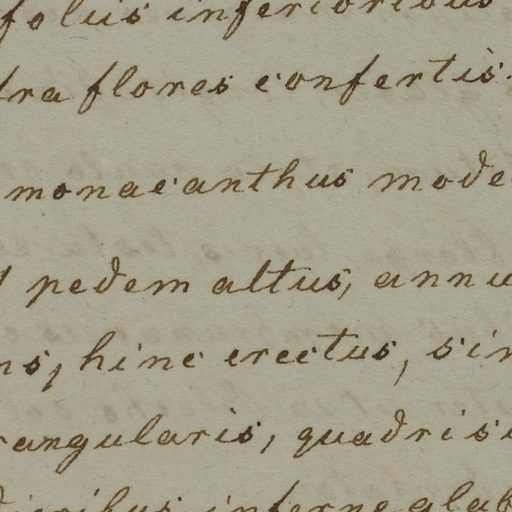 foliis inferioribus
dra flores confertis
monacanthus mode
pedem altus, annu
ns, hinc erectus, sim
rangularis, quadrisu
inferne glab